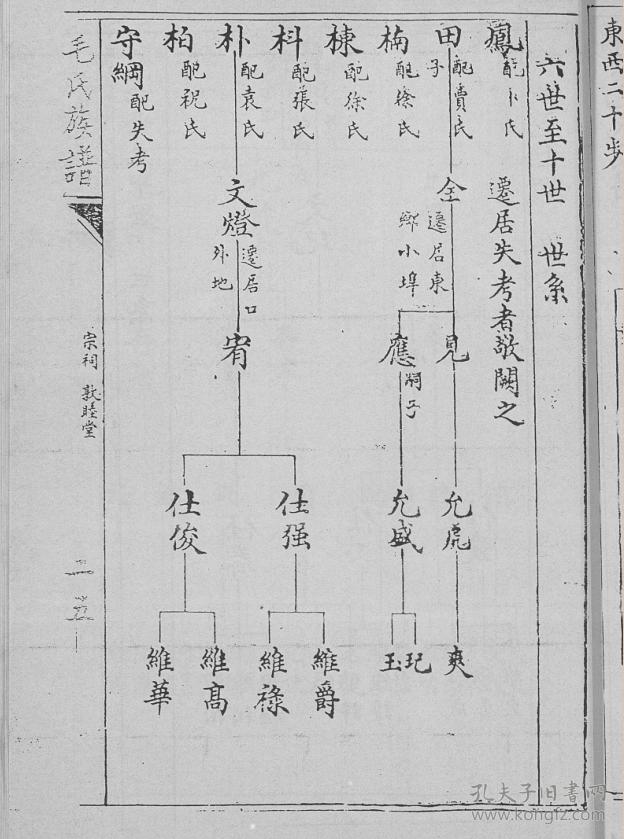 東西二十步
六世至十世 世系
遷居失考者敬闕之
鳳 配卜氏
田 配賈氏
子
全 遷居東
鄉小埠
見
允虎
爽
楠 配徐氏
應 嗣子
允盛
玘
玉
棟 配徐氏
枓 配張氏
朴 配袁氏
文燈 遷居口
外地
宥
仕强
維爵
維祿
仕俊
維高
維華
柏 配祝氏
守綱 配失考
毛氏族譜
宗祠 敦睦堂
二五
孔夫子旧書网
www.kongfz.com